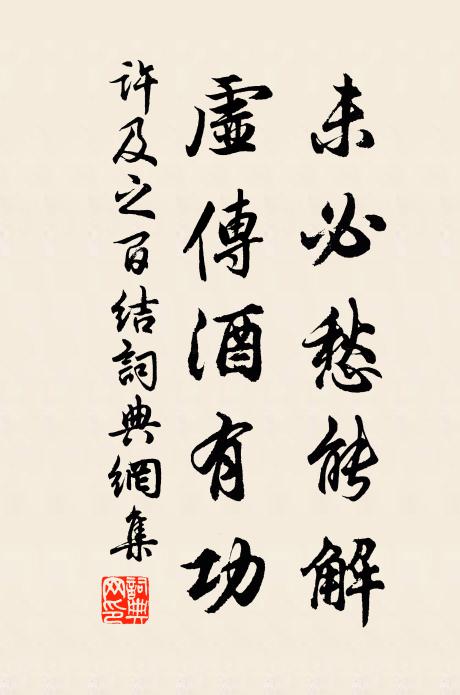 未必愁能解
虛傳酒有功
許及之百結詞典網集
詞典網印